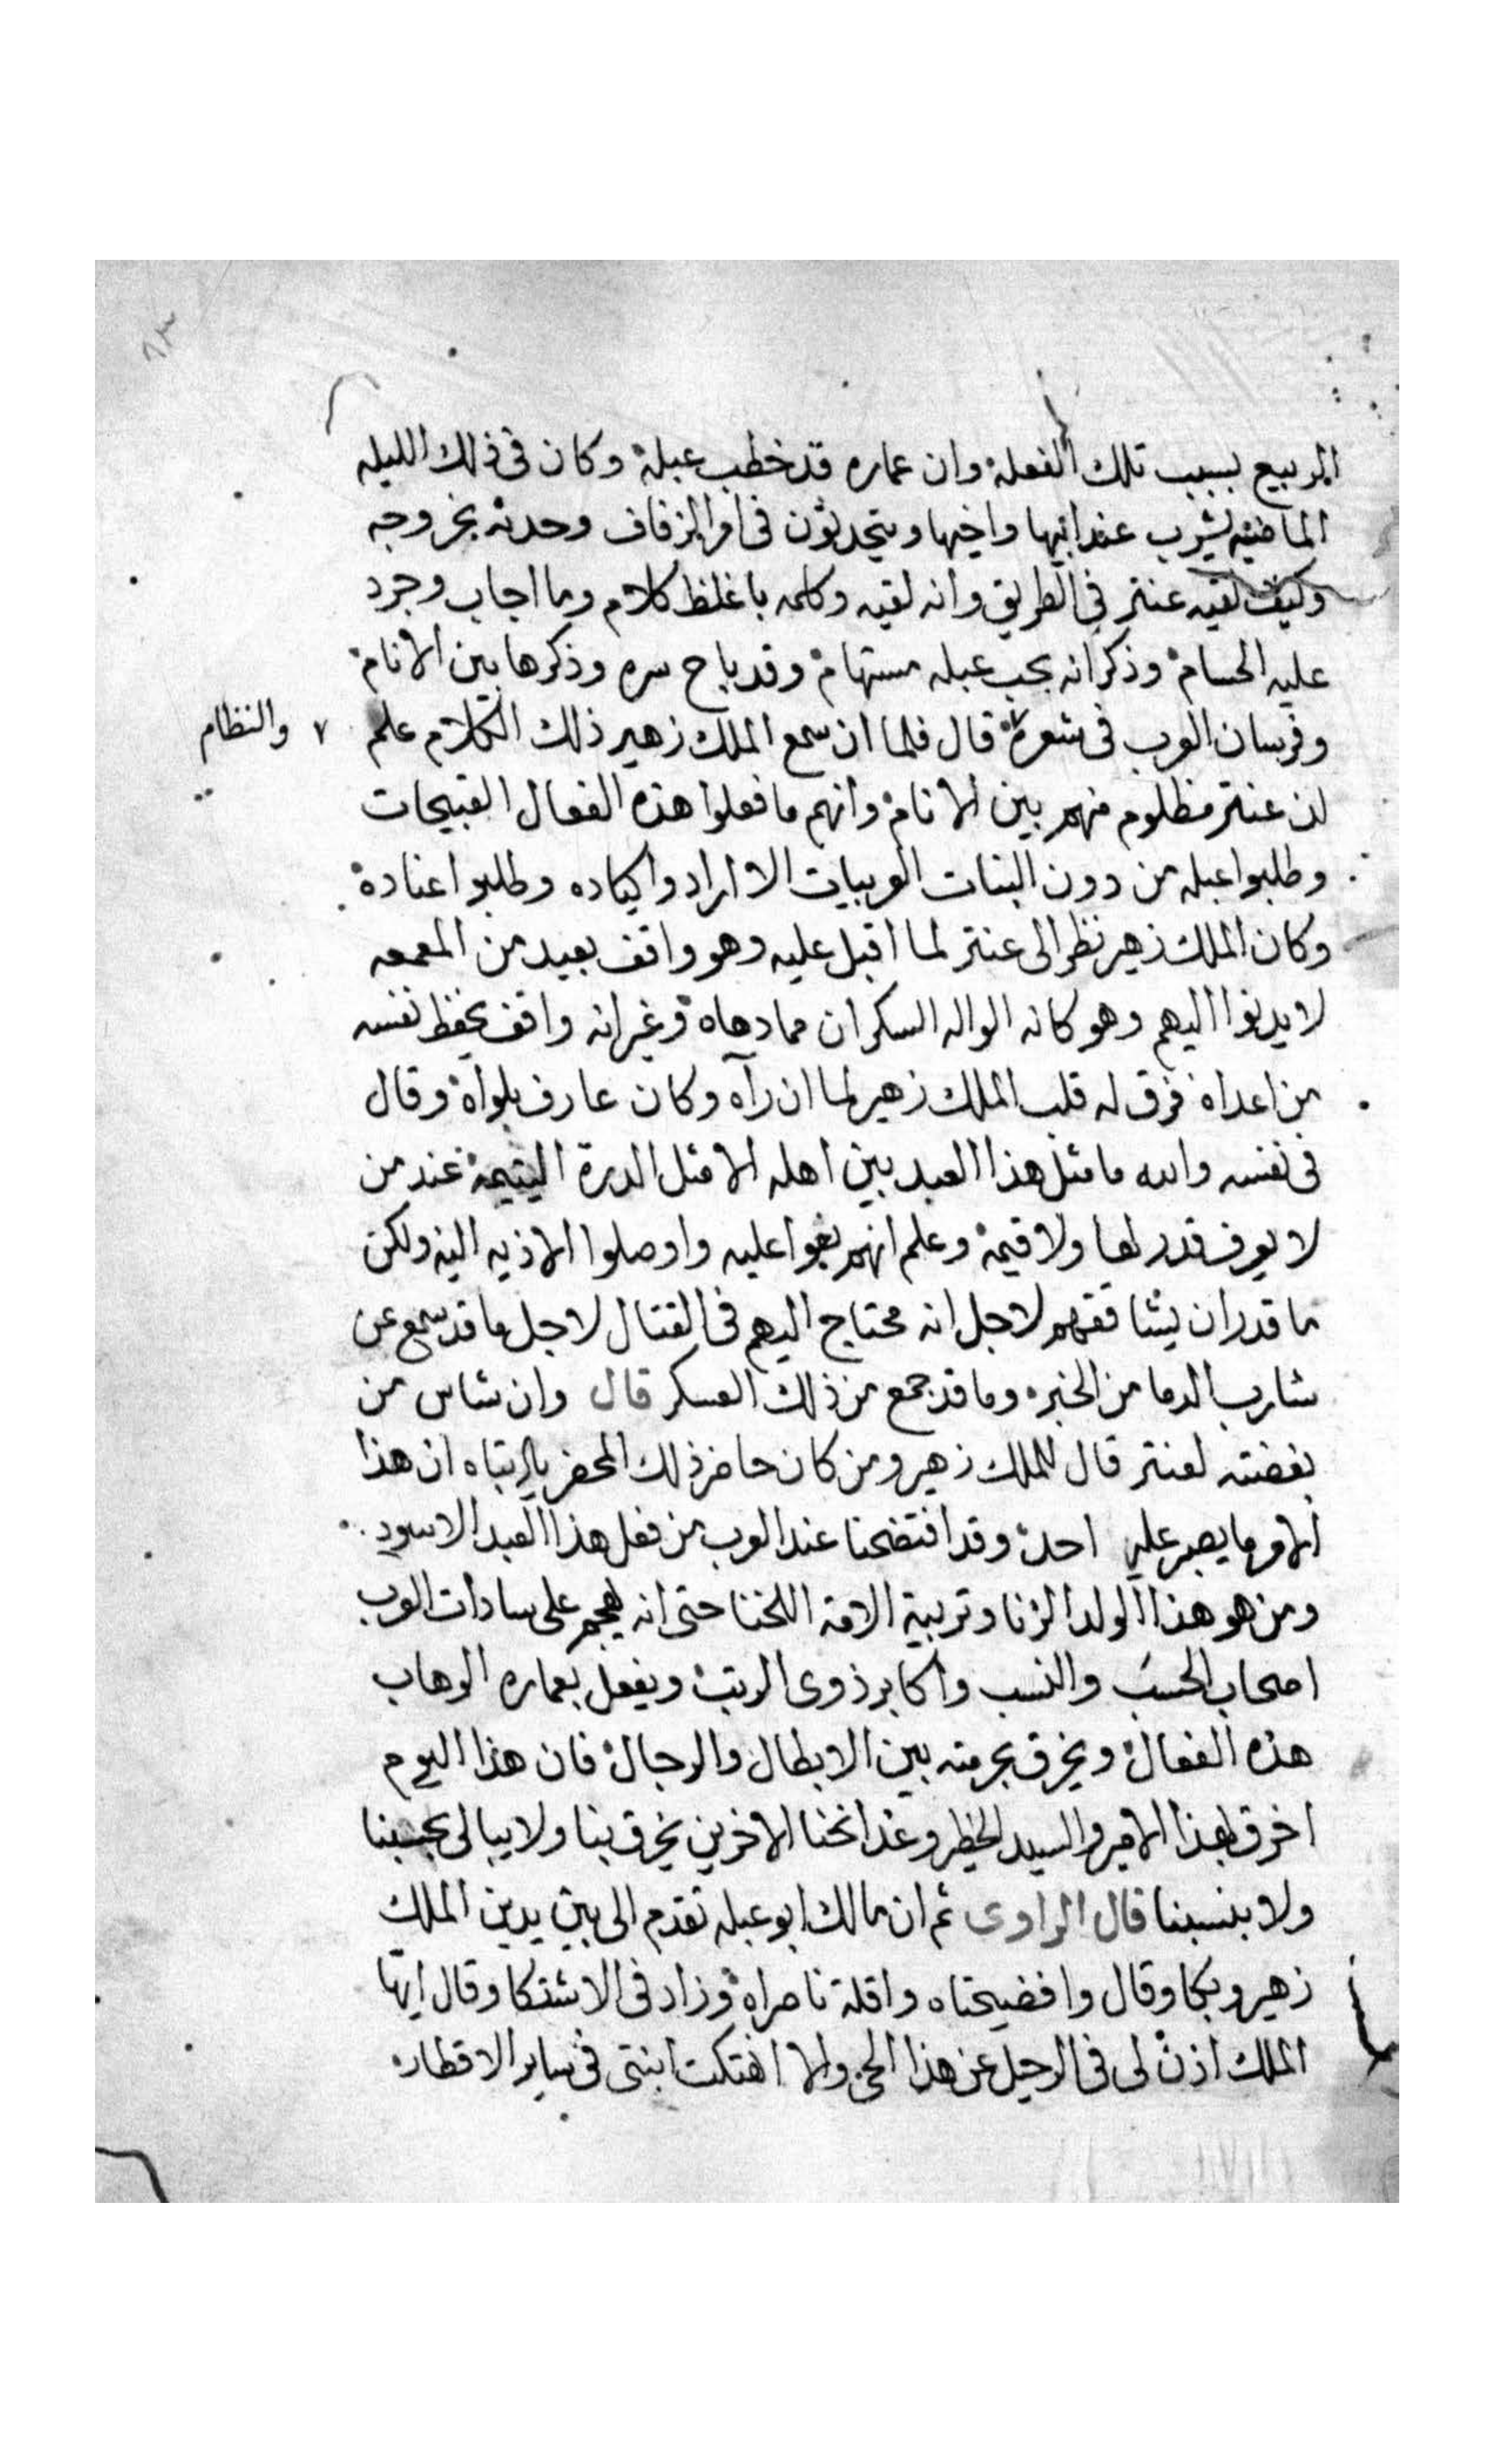 الربيع بسبب تلك الفعله وان عماره قد خطب عبلة وكان فى ذلك الليله
الماضيه يشرب عند ابيها واخيها ويتحدثون فى امر الزفاف وحدثه بخروجه
وكيف لقيه عنتر فى الطريق وانه لقيه وكلمه باغلظ كلام وما اجاب وجرد
عليه الحسام وذكر انه بحب عبله مستهام وقد باح سره وذكرها بين الانام
وفرسان العرب فى شعره قال فلما ان سمع الملك زهير ذلك الكلام علم
٧ والنظام
ان عنتر مظلوم منهم بين الانام وانهم ما فعلوا هذه الفعال القبيحات
وطلبوا عبله من دون البنات العربيات الا ارادوا كياده وطلبوا عناده
وكان الملك زهير نظر الى عنتر لما اقبل عليه وهو واقف بعيد من المعمعه
لا يدنوا اليهم وهو كانه الواله السكران مما دهاه وغير انه واقف يحفظ نفسه
من اعداه فرق له قلب الملك زهير لما ان رآه وكان عارف بلواه وقال
فى نفسه والله ما مثل هذا العبد بين اهله الا مثل الدرة اليتيمة عند من
لا يعرف قدر لها ولا قيمة وعلم انهم بغوا عليه واوصلوا الاذيه اليه ولكن
ما قدر ان يشاققهم لاجل انه محتاج اليهم فى القتال لاجل ما قد سمع عن
شارب الدما من الخبره وما قد جمع من ذلك العسكر قال وان شاس من
بغضته لعنتر قال للملك زهير ومن كان حاضر ذلك المحضر يا ابتاه ان هذا
الامر ما يصبر عليه احد وقد افتضحنا عند العرب من فعل هذا العبد الاسود
ومن هو هذا الولد الزنا وتربية الامة اللخنا حتى انه يهجم على سادات العرب
اصحاب الحسب والنسب واكابر ذوى الرتب ويفعل بعماره الوهاب
هذه الفعال ويخرق بحرمته بين الابطال والرجال فان هذا اليوم
اخرق بهذا الامير والسيد الخطير وغدا نحنا الاخرين يخرق بنا ولا يبالى بحسبنا
ولا بنسبنا قال الراوى ثم ان مالك ابو عبله تقدم الى بين يدين الملك
زهير وبكا وقال وافضيحتاه واقلة ناصراه وزاد فى الاشتكا وقال ايها
الملك اذن لى فى الرحيل عن هذا الحى والا انهتكت ابنتى فى ساير الاقطار